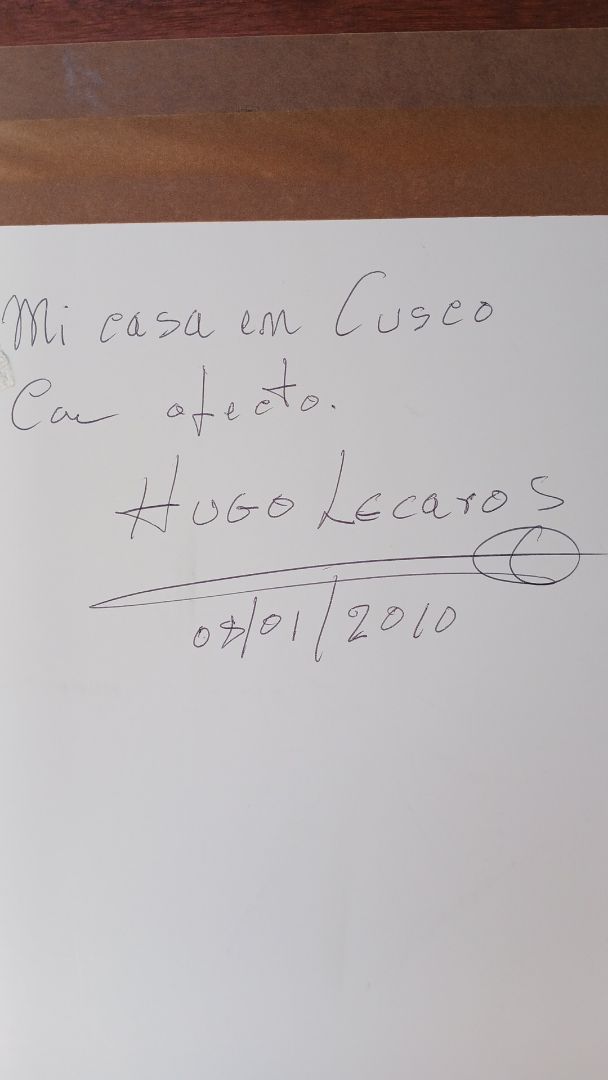 Mi casa en Cusco
Con afecto.
Hugo Lecaros
08/01/2010